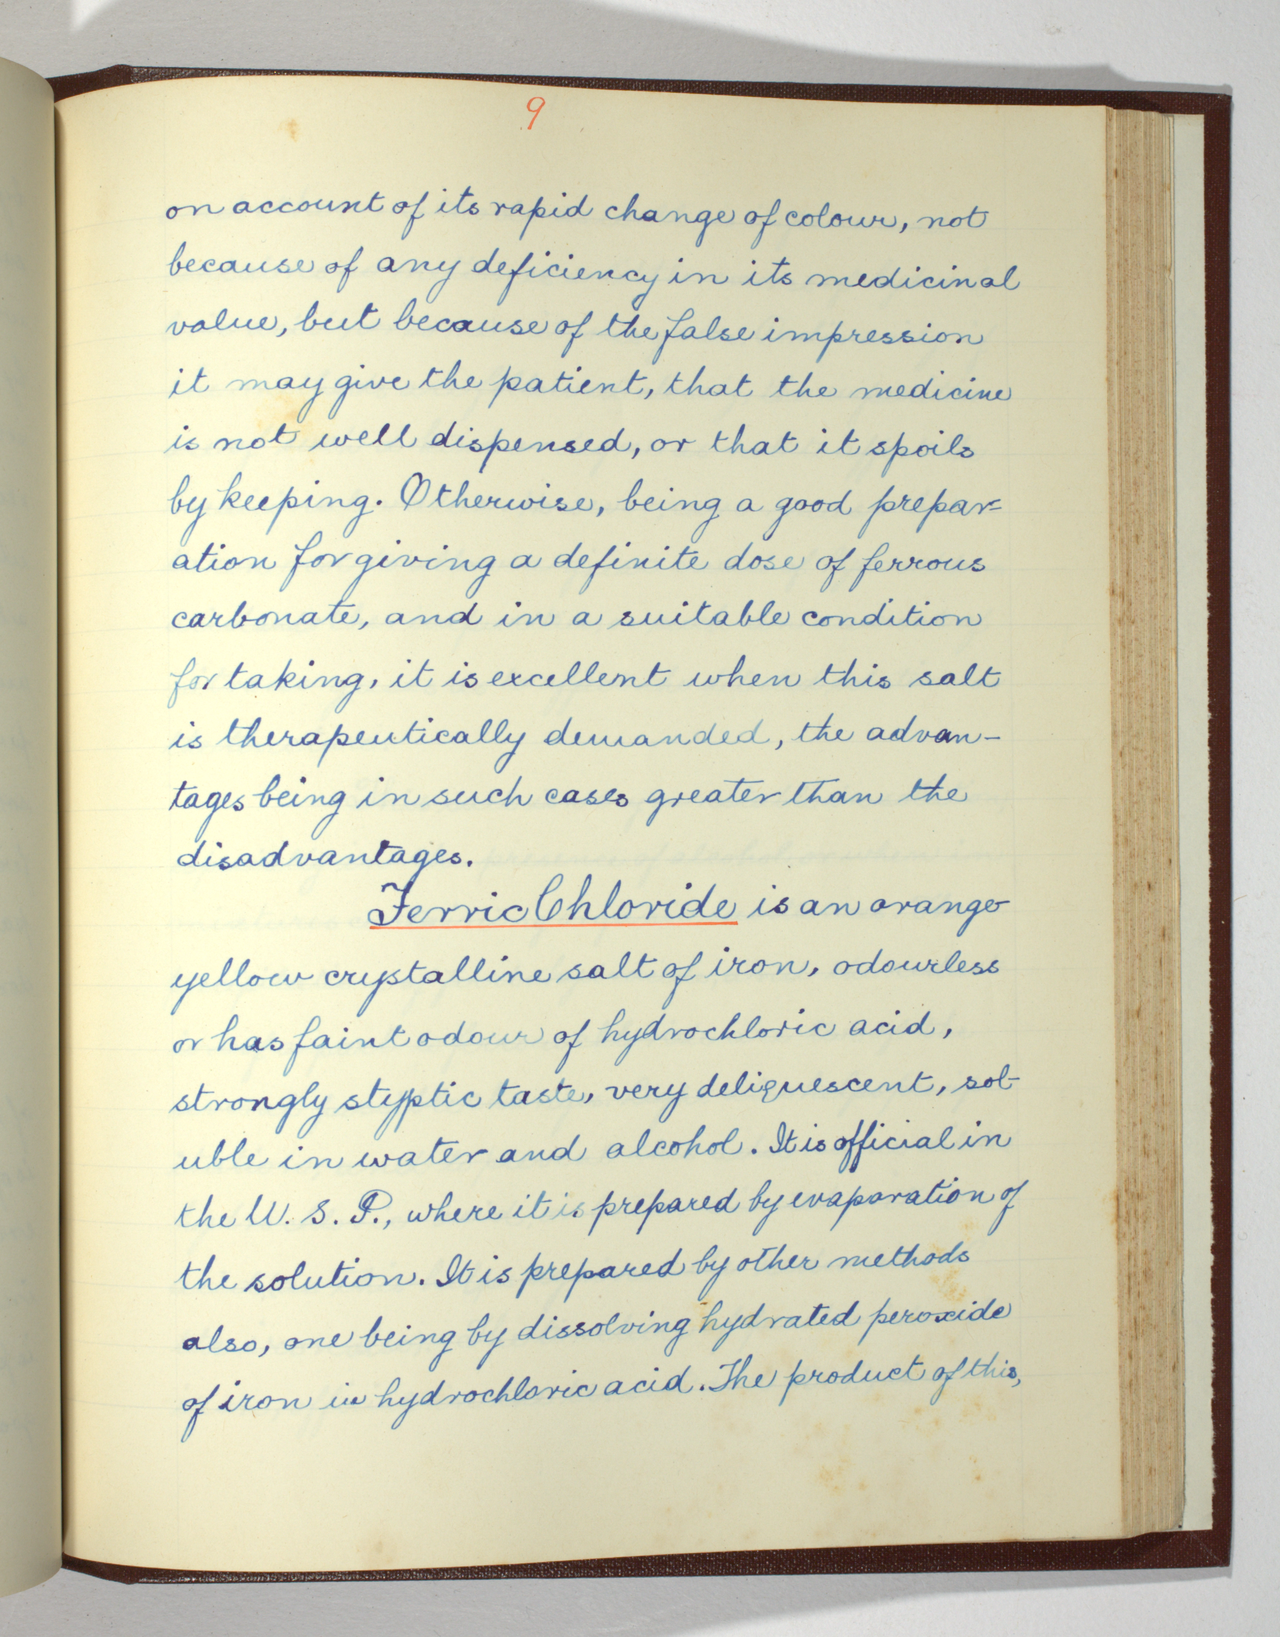 9
on account of its rapid change of colour, not
because of any deficiency in its medicinal
value, but because of the false impression
it may give the patient, that the medicine
is not well dispensed, or that it spoils
by keeping. Otherwise, being a good prepar=
ation for giving a definite dose of ferrous
carbonate, and in a suitable condition
for taking, it is excellent when this salt
is therapeutically demanded, the advan-
tages being in such cases greater than the
disadvantages.
Ferric Chloride is an orange
yellow crystalline salt of iron, odourless
or has faint odour of hydrochloric acid,
strongly styptic taste, very deliquescent, sol-
uble in water and alcohol. It is official in
the U. S. P., where it is prepared by evaporation of
the solution. It is prepared by other methods
also, one being by dissolving hydrated peroxide
of iron in hydrochloric acid. The product of this,